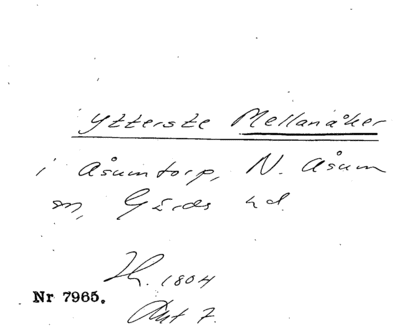 Ytterste Mellanåker
i Åsumtorp, N. Åsum
sn, Gärds hd.
1804
Nr 7965.
Akt 7.